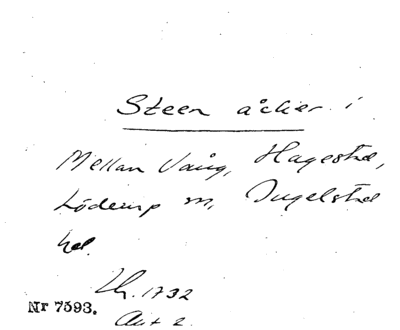 Steen åcker i
Mellan Vång, Hagestad,
Löderup sn, Ingelstad
hd.
Lh. 1732
Akt 2.
Nr 7593.